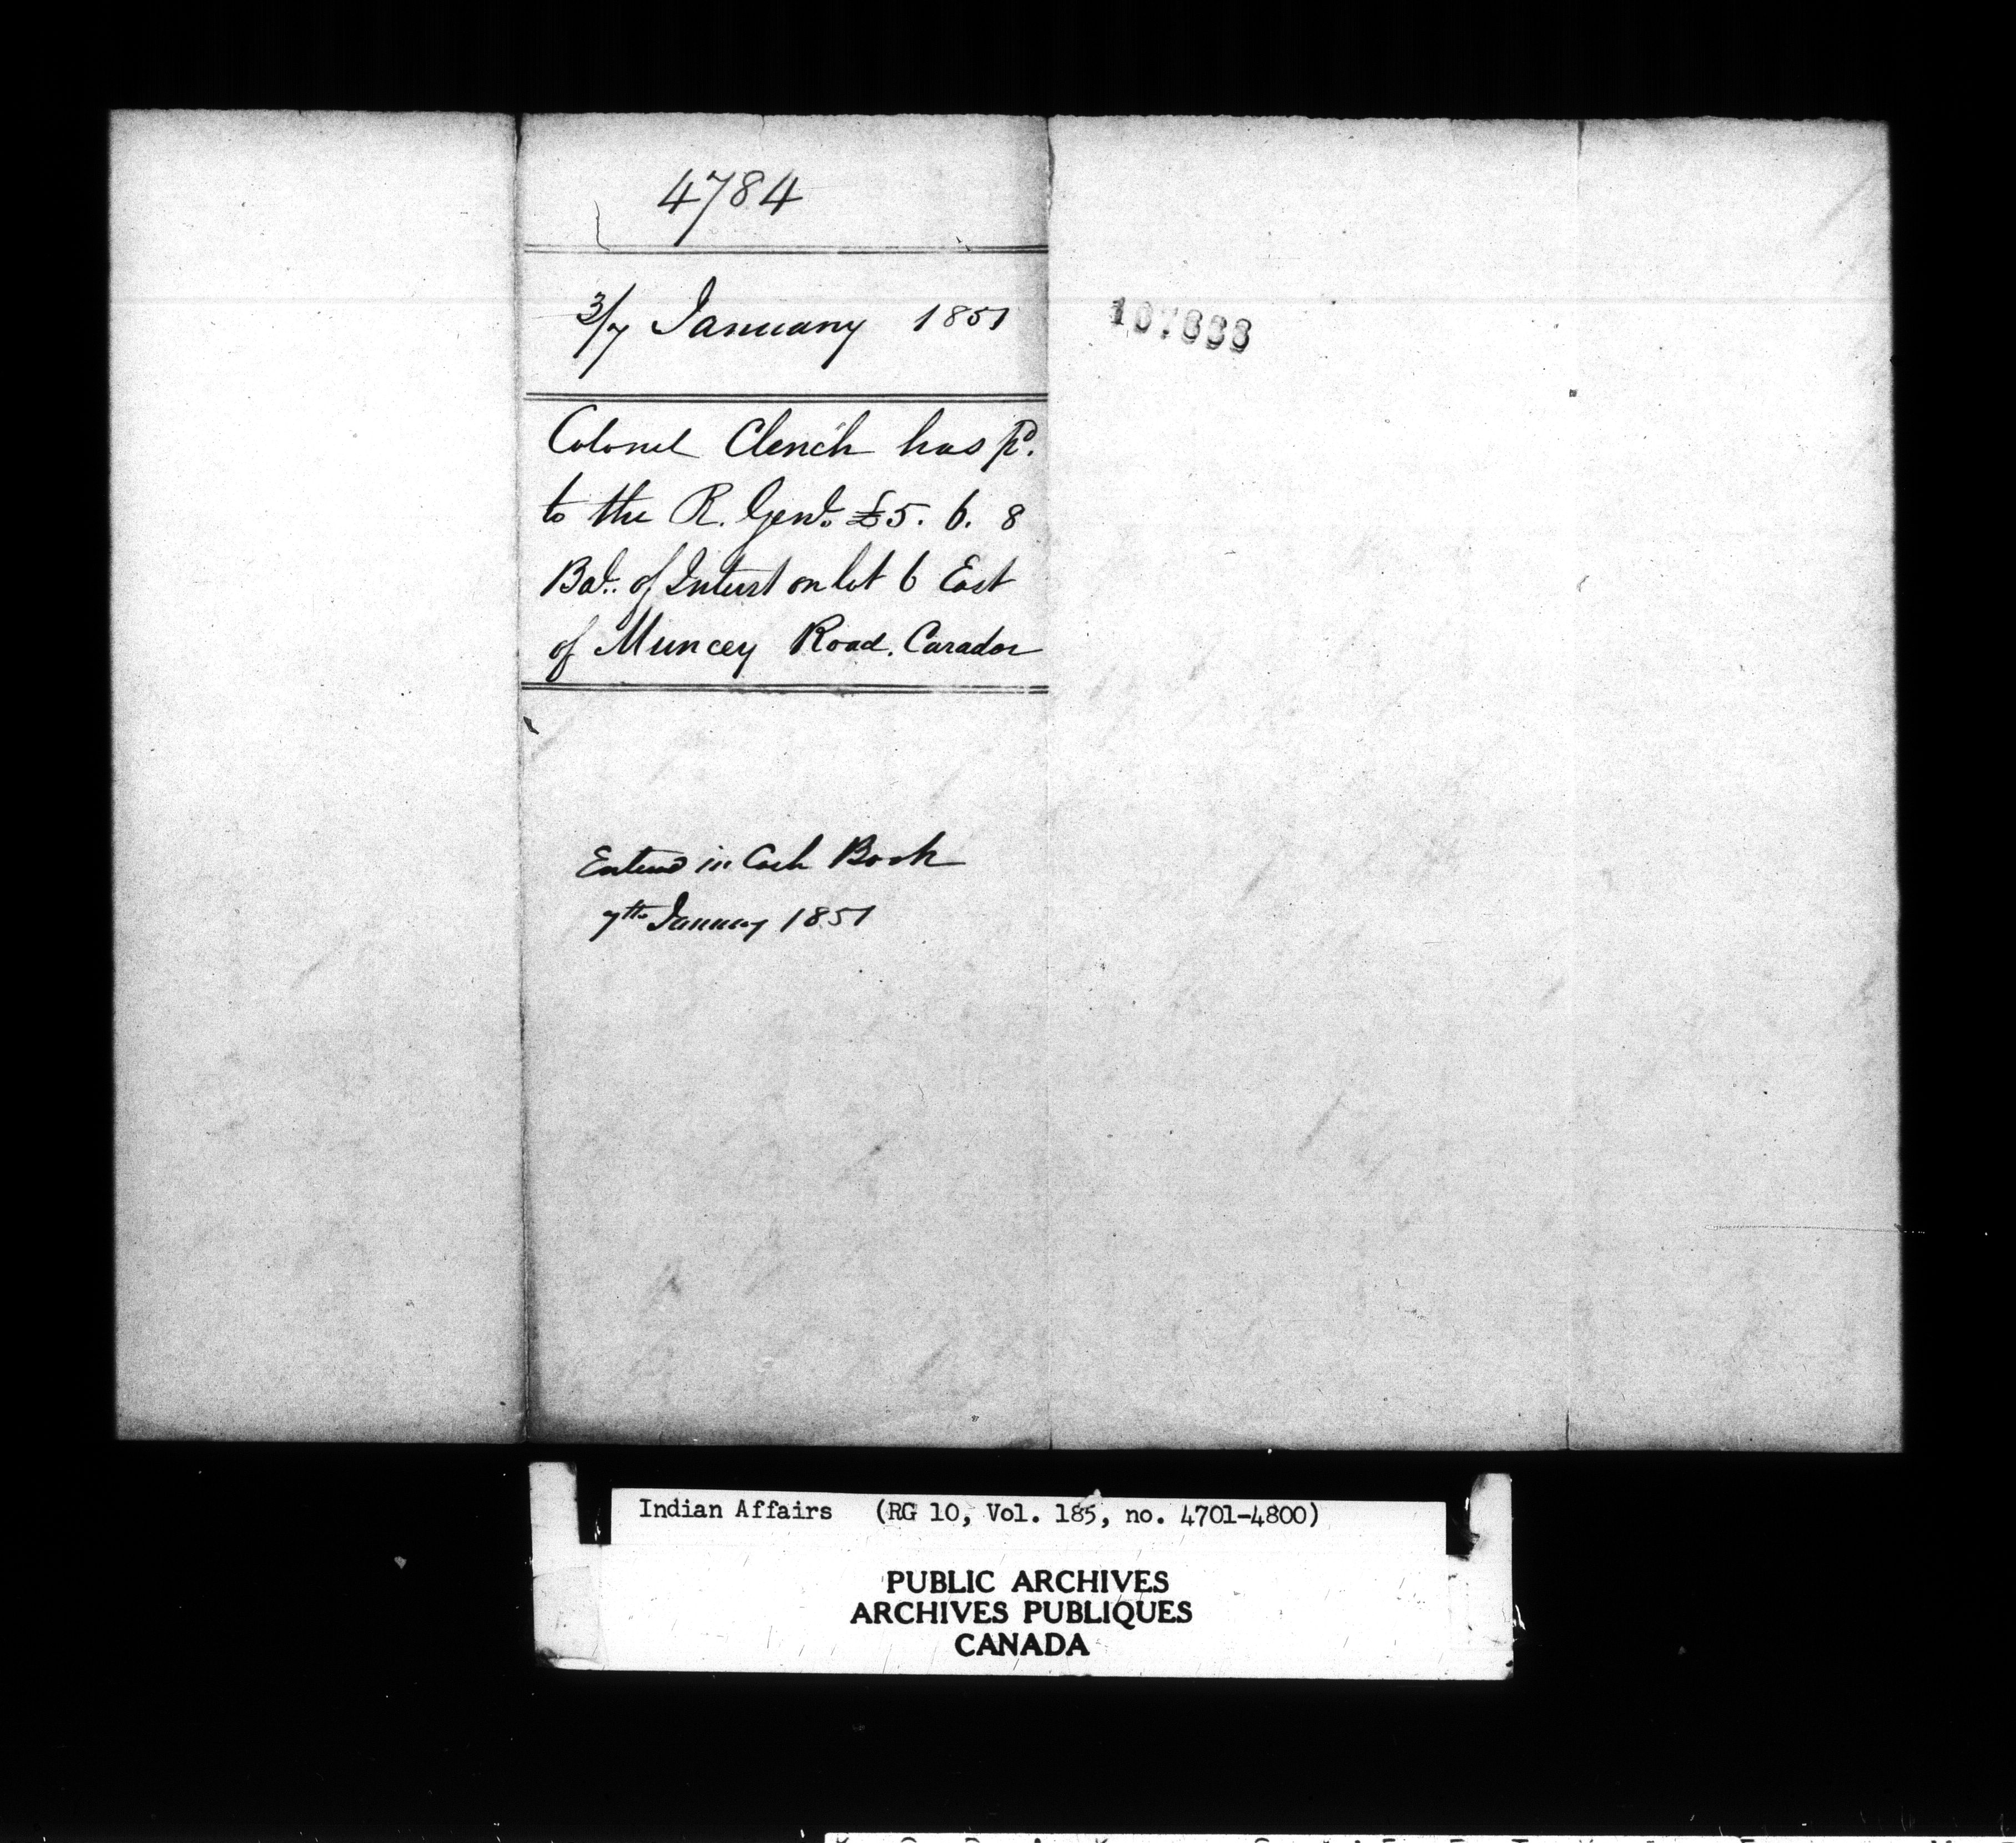 4784
3/7 January 1851
Colonel Clench has pd.
to the R. Genl. £5. 6. 8
Bal. of Interest on lot 6 East
of Muncey Road. Carador
Entered in Cash Book
7th January 1851
Indian Affairs (RG 10, Vol. 185, no. 4701-4800)
PUBLIC ARCHIVES
ARCHIVES PUBLIQUES
CANADA